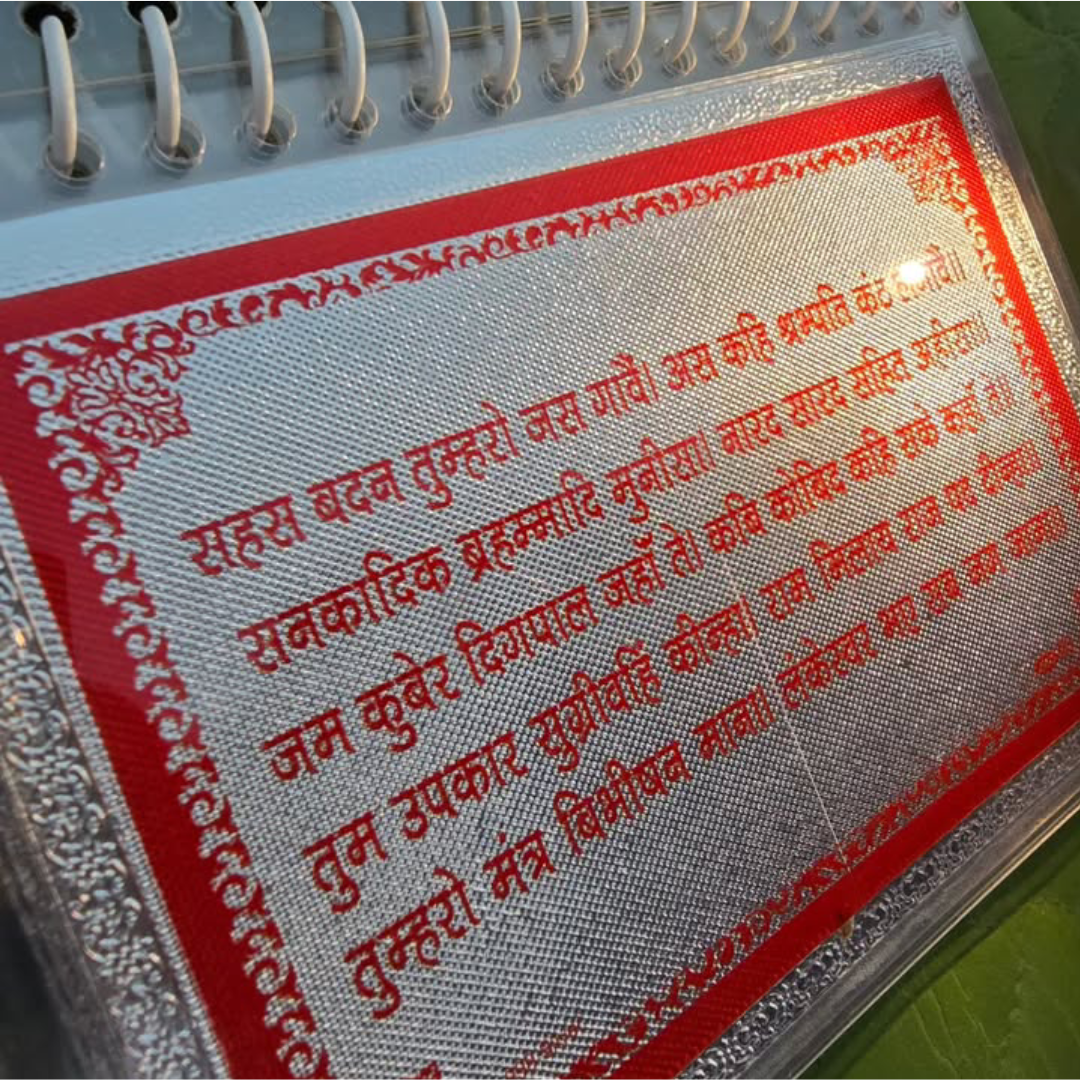 सहस बदन तुम्हरो जस गावैं। अस कहि श्रम्पति कंठ लगावैं॥
सनकादिक ब्रहम्मादि मुनीसा। नारद सारद सहित अहीसा॥
जम कुबेर दिगपाल जहाँ ते। कबि कोबिद कहि सके कहाँ ते॥
तुम उपकार सुग्रीवहिं कीन्हा। राम मिलाय राज पद दीन्हा॥
तुम्हरो मंत्र बिभीषन माना॥ लंकेस्वर भए सब जग जाना॥